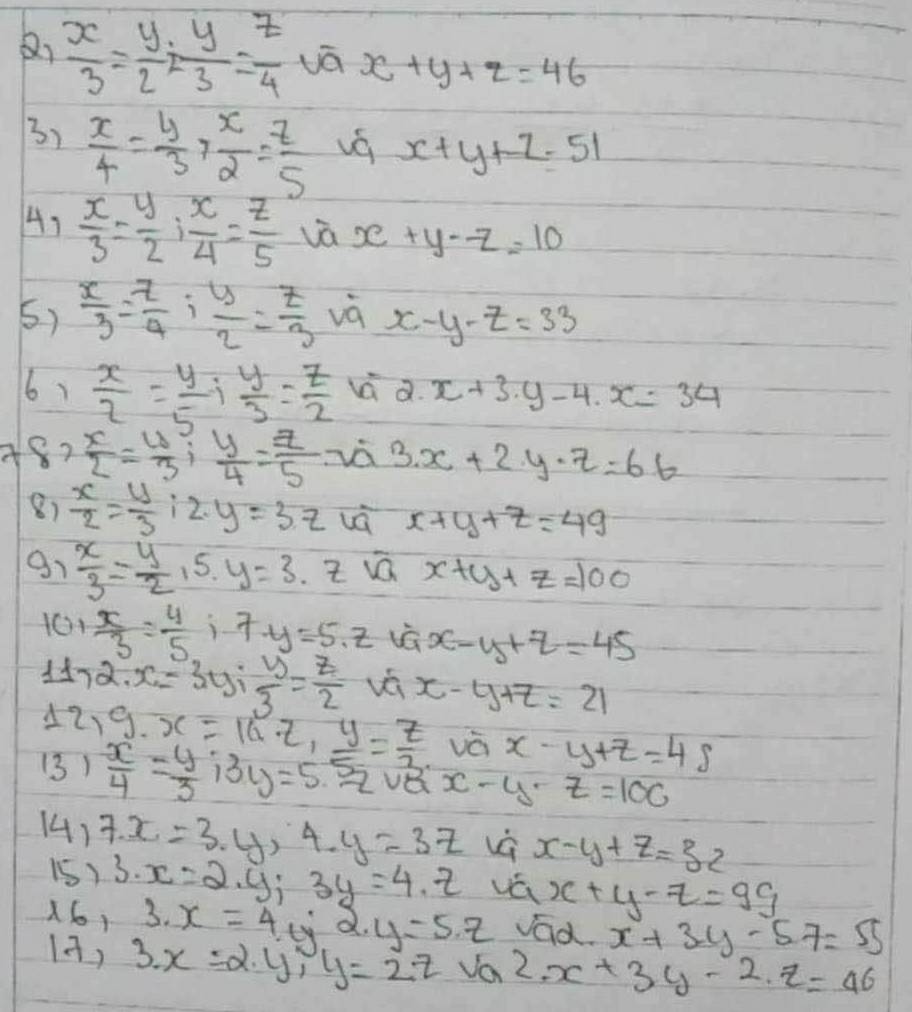 2, x/3 = y/2 ; y/3 = z/4 và x + y + z = 46
3, x/4 = y/3 , x/2 = z/5 và x + y + z = 51
4, x/3 = y/2 ; x/4 = z/5 và x + y - z = 10
5, x/3 = z/4 ; y/2 = z/3 và x - y - z = 33
6, x/2 = y/5 ; y/3 = z/2 và 2.x + 3.y - 4.x = 34
7 8, x/2 = y/3 ; y/4 = z/5 và 3.x + 2.y . z = 66
8, x/2 = y/3 ; 2.y = 3z và x + y + z = 49
9, x/3 = y/2 , 5.y = 3.z và x + y + z = 100
10, x/3 = y/5 ; 7.y = 5.z và x - y + z = 45
11, 2.x = 3y ; y/5 = z/2 và x - y + z = 21
12, 9.x = z, y = z và x - y + z = 48
13, x/4 = y/3 ; 3y = 5.z và x - y - z = 100
14, 7.x = 3.y, 4.y = 3z và x - y + z = 32
15, 3.x = 2.y; 3y = 4.z và x + y - z = 99
16, 3.x = 4.y; 2.y = 5.z và 2.x + 3y - 5z = 55
17, 3.x = 2.y; y = 2z và 2.x + 3y - 2.z = 46